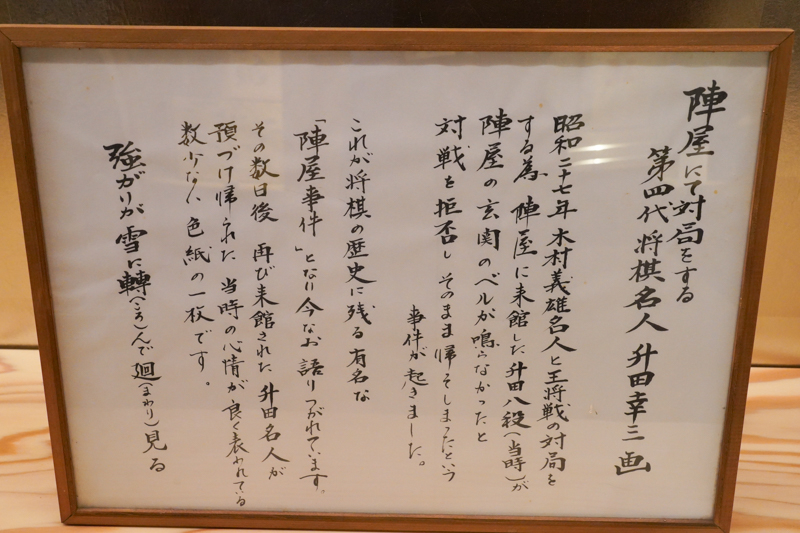 陣屋にて対局をする
第四代将棋名人 升田幸三 画
昭和二十七年 木村義雄名人と王将戦の対局を
する為 陣屋に来館した 升田八段(当時)が
陣屋の玄関のベルが鳴らなかったと
対戦を拒否し そのまま帰ってしまったという
事件が起きました。
これが将棋の歴史に残る有名な
「陣屋事件」となり 今なお語りつがれています。
その数日後 再び来館された 升田名人が
預づけ帰られた 当時の心情が良く表われている
数少ない色紙の一枚です。
強がりが 雪に轉(ころ)んで 廻(まわり)見る